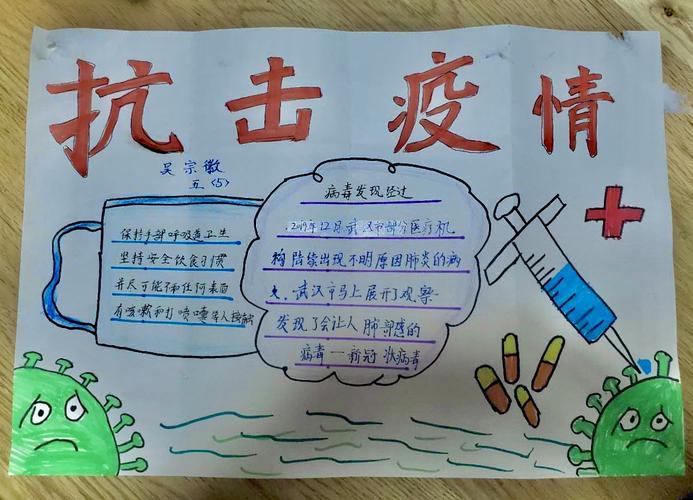 抗击疫情
吴宗徽
五(5)
保持手部呼吸道卫生
坚持安全饮食习惯
并尽可能和任何表面
有咳嗽和打喷嚏等人接触
病毒发现经过
2019年12月武汉市部分医疗机
构陆续出现不明原因肺炎的病
人.武汉市马上展开了观察
发现了会让人肺部感的
病毒一新冠状病毒